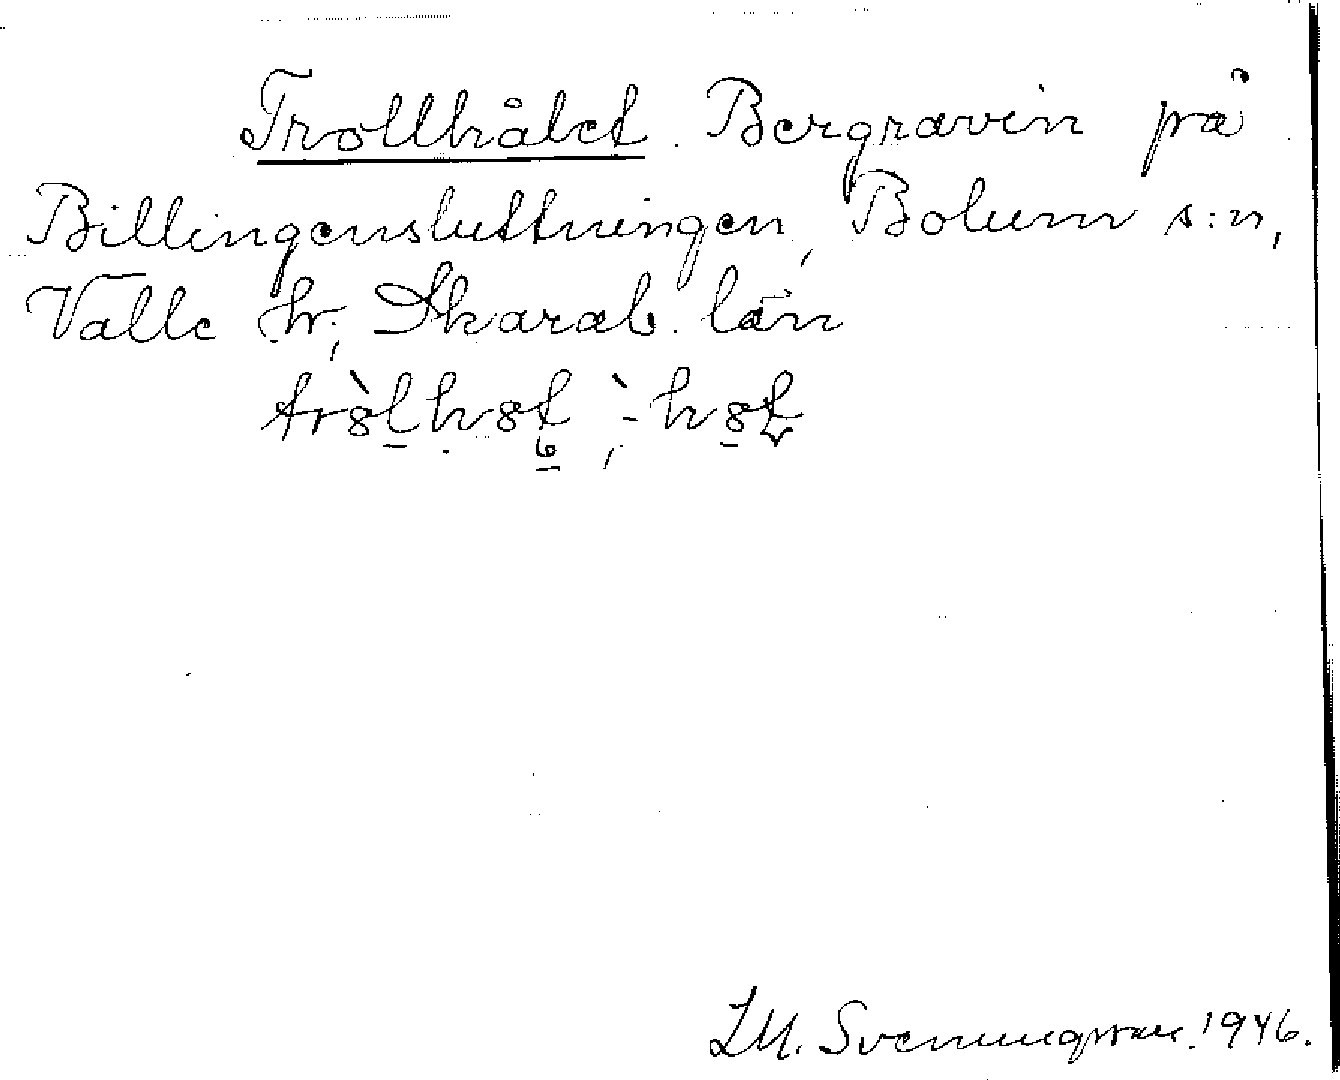 Trollhålet. Bergravin på
Billingensluttningen, Bolum s:n,
Valle hr, Skarab. län
S. M. Svenungsson. 1946.